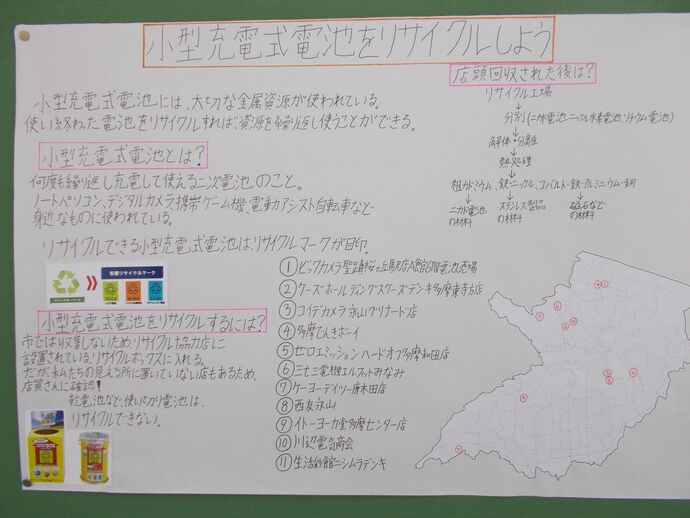 小型充電式電池をリサイクルしよう
小型充電式電池には、大切な金属資源が使われている。
使い終わった電池をリサイクルすれば、資源を繰り返し使うことができる。
小型充電式電池とは?
何度も繰り返し充電して使える二次電池のこと。
ノートパソコン、デジタルカメラ、携帯ゲーム機、電動アシスト自転車など
身近なものに使われている。
リサイクルできる小型充電式電池は、リサイクルマークが目印。
各種リサイクルマーク
小型充電式電池をリサイクルするには?
市では収集しないためリサイクル協力店に
設置されているリサイクルボックスに入れる。
だが、私たちの見える所に置いていない店もあるため、
店員さんに確認!
乾電池など、使い切り電池は、
リサイクルできない。
店頭回収された後は?
リサイクル工場
↓
分別(ニカド電池、ニッケル水素電池、リチウム電池)
↓
解体・分離
↓
熱処理
↓
粗カドミウム、鉄・ニッケル、コバルト・鉄・アルミニウム・銅
↓ ↓ ↓
ニカド電池の材料 ステンレス製品の材料 磁石などの材料
①ビックカメラ聖蹟桜ヶ丘駅店A館6階電池売場
②ケーズホールディングスケーズデンキ多摩東寺方店
③コイデカメラ永山グリナード店
④多摩でんきホーイ
⑤ゼロエミッションハードオフ多摩和田店
⑥三七三電機エルフットみなみ
⑦ケーヨーデイツー唐木田店
⑧西友永山
⑨イトーヨーカ堂多摩センター店
⑩川辺電気商会
⑪生活彩館ニシムラデンキ